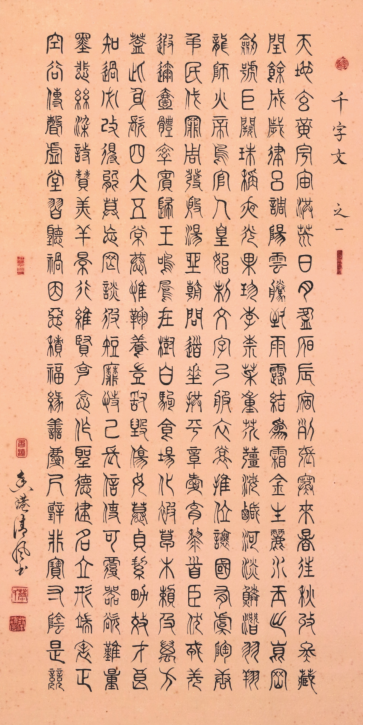 千字文 之一
天地玄黃宇宙洪荒日月盈昃辰宿列張寒來暑往秋收冬藏
閏餘成歲律呂調陽雲騰致雨露結為霜金生麗水玉出崑岡
劍號巨闕珠稱夜光果珍李柰菜重芥薑海鹹河淡鱗潛羽翔
龍師火帝鳥官人皇始制文字乃服衣裳推位讓國有虞陶唐
弔民伐罪周發殷湯坐朝問道垂拱平章愛育黎首臣伏戎羌
遐邇壹體率賓歸王鳴鳳在樹白駒食場化被草木賴及萬方
蓋此身髮四大五常恭惟鞠養豈敢毀傷女慕貞絜男效才良
知過必改得能莫忘罔談彼短靡恃己長信使可覆器欲難量
墨悲絲染詩讚羔羊景行維賢克念作聖德建名立形端表正
空谷傳聲虛堂習聽禍因惡積福緣善慶尺璧非寶寸陰是競
香港清風书